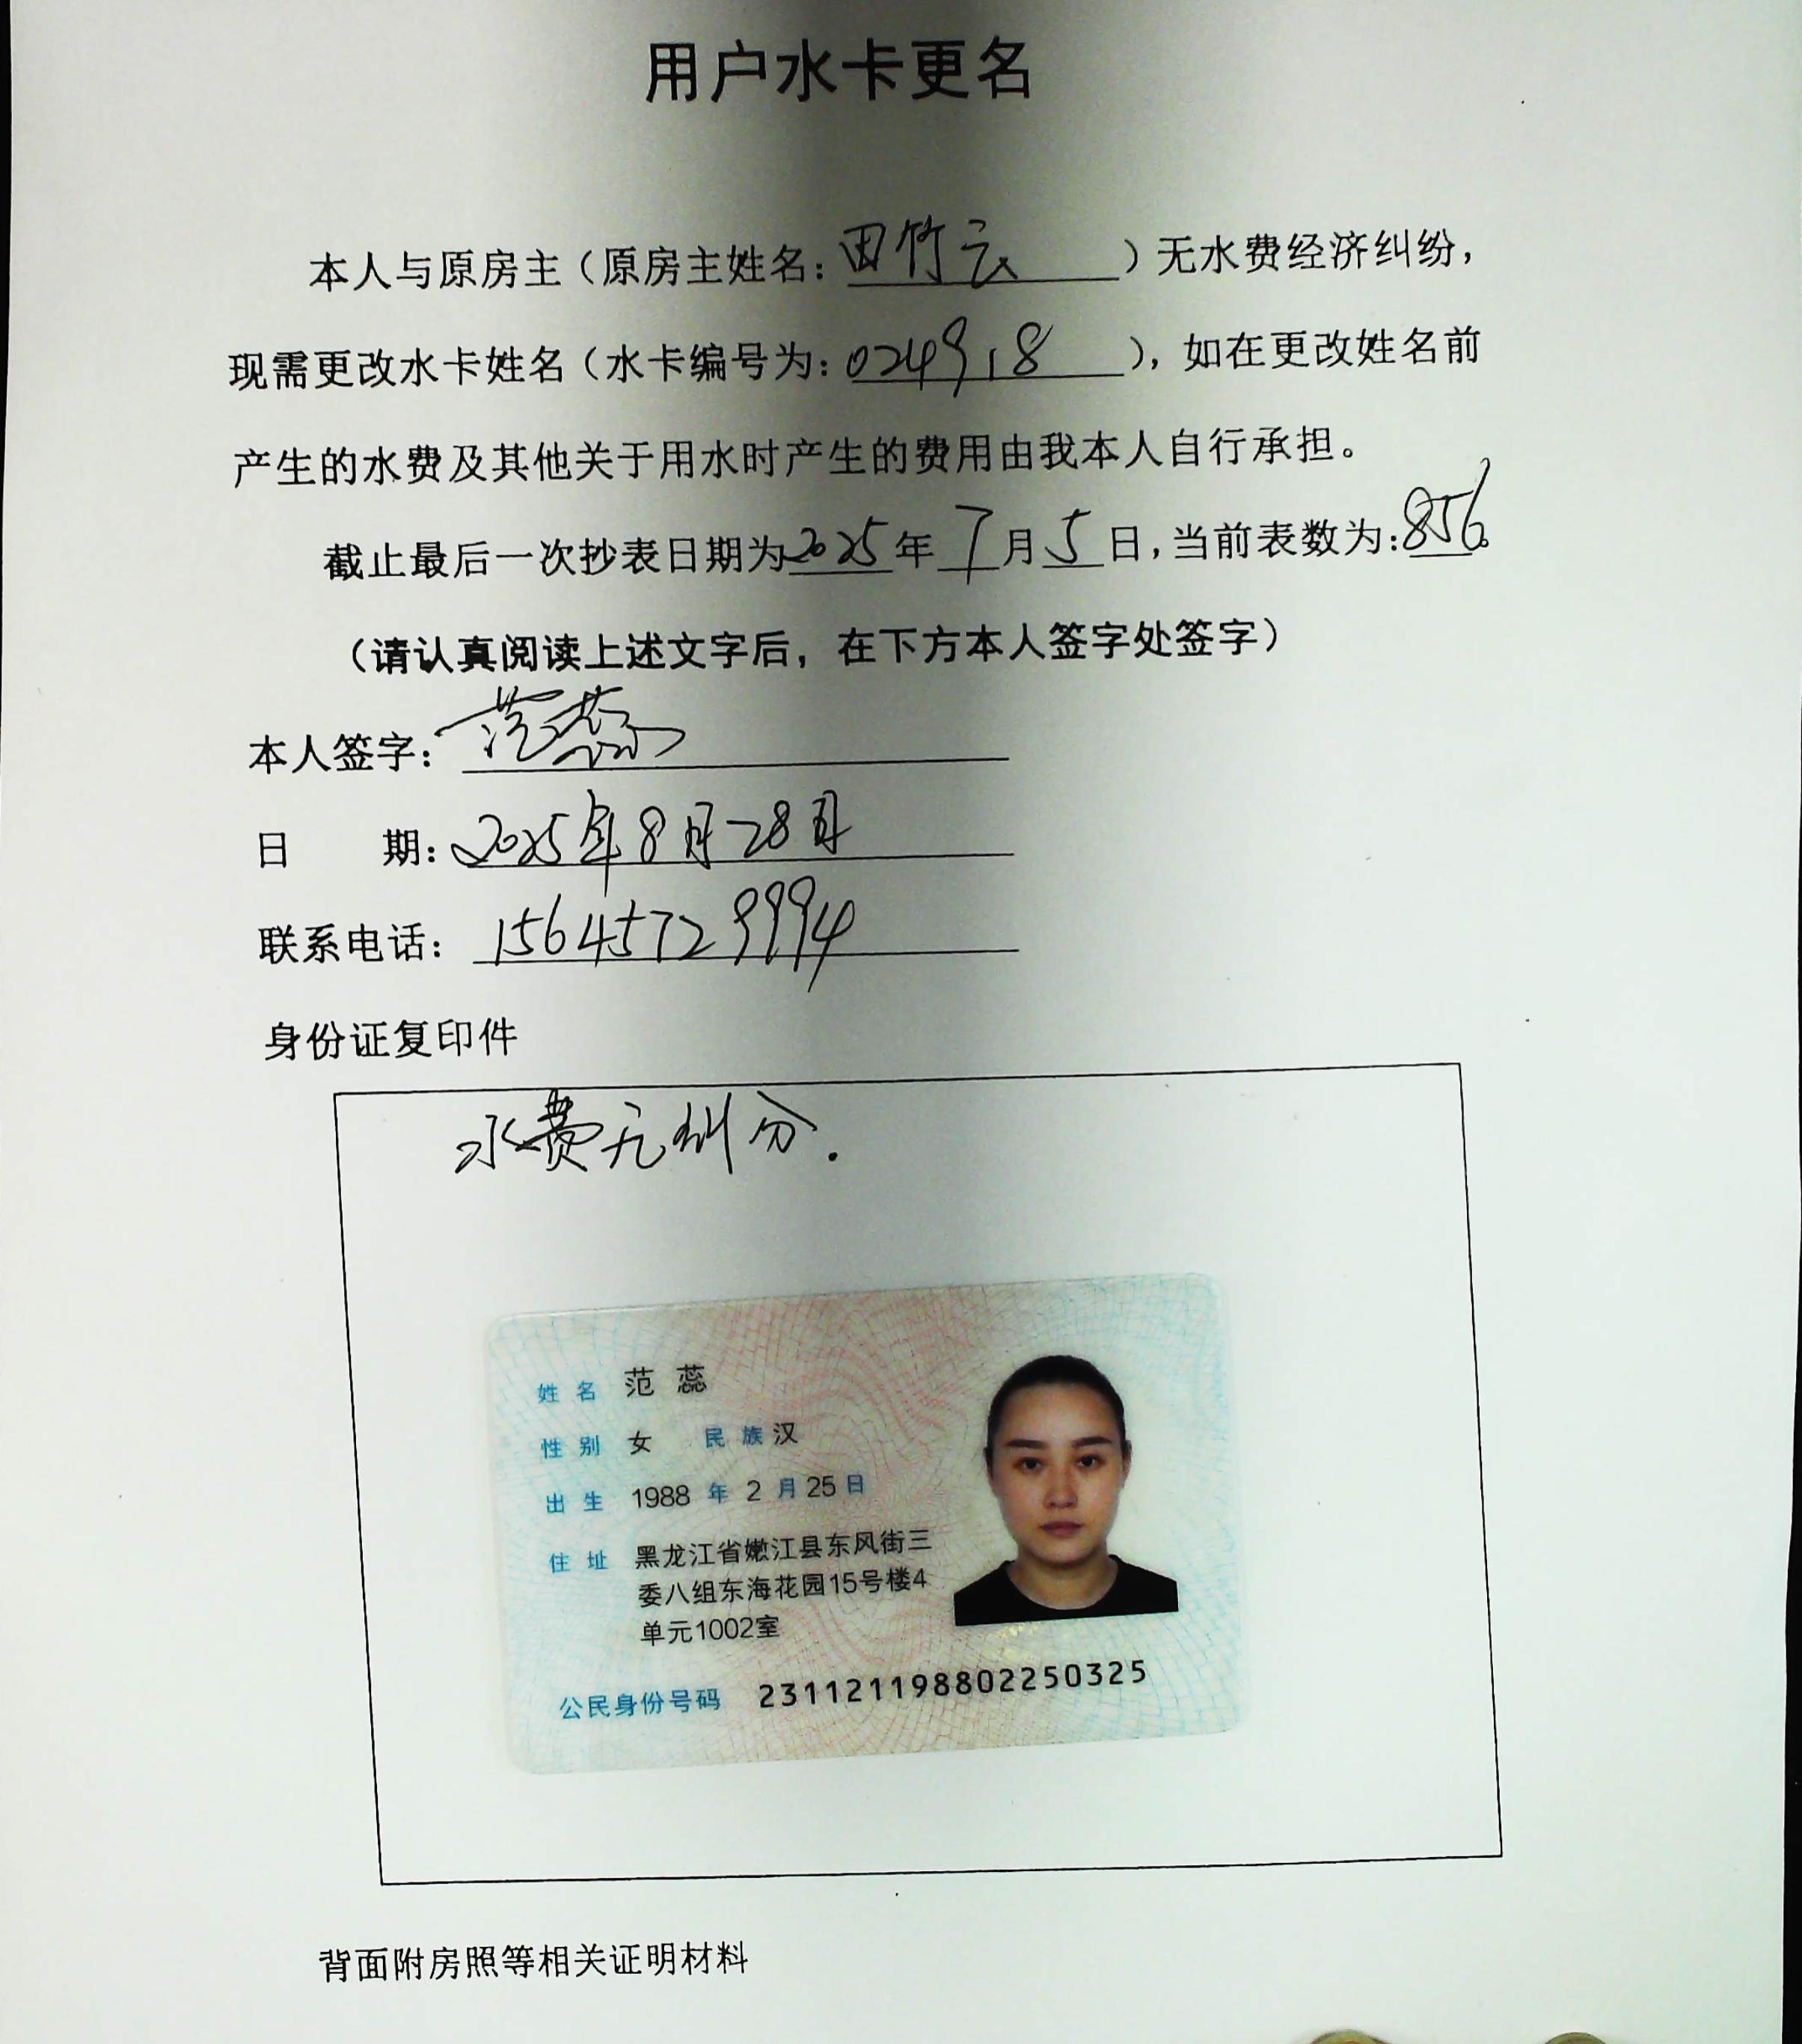 用户水卡更名
本人与原房主（原房主姓名：田竹云）无水费经济纠纷，
现需更改水卡姓名（水卡编号为：024918），如在更改姓名前
产生的水费及其他关于用水时产生的费用由我本人自行承担。
截止最后一次抄表日期为2025年7月5日，当前表数为：856。
（请认真阅读上述文字后，在下方本人签字处签字）
本人签字：范蕊
日 期：2025年8月28日
联系电话：15645729994
身份证复印件
水费无纠分.
姓名 范蕊
性别 女 民族 汉
出生 1988年2月25日
住址 黑龙江省嫩江县东风街三
委八组东海花园15号楼4
单元1002室
公民身份号码 231121198802250325
背面附房照等相关证明材料